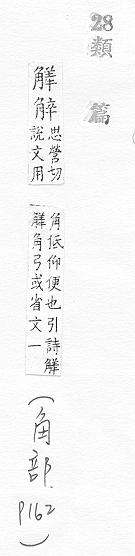 28 類篇
觲觪
思營切
說文用
角低仰便也引詩觲
觲角弓或省文一
(角部 P162)